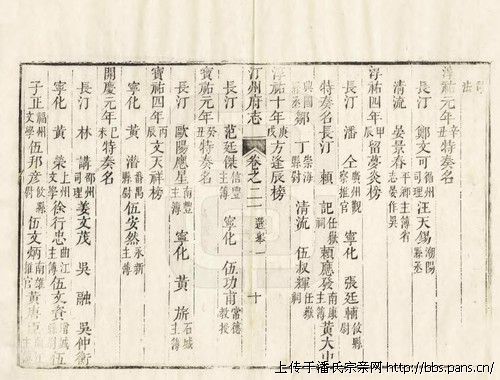 淳祐元年辛丑特奏名
長汀 鄭文可循州司理 汪天錫潮陽縣丞
清流 晏景春
淳祐四年甲辰留夢炎榜
長汀 潘仝廣州觀察推官 寧化 張廷輔攸縣尉
特奏名長汀 賴記任嶽祠 賴應發南康主簿 黃大
興國縣丞 鄒丁 清流 伍杈輝任嶽祠
淳祐十年庚戌方逢辰榜
汀州府志 卷之 選舉一 十
長汀 范廷傑信豐主簿 寧化 伍功甫常德教授
寶祐元年癸丑特奏名
長汀 歐陽應星南豐主簿 寧化 黃旂石城簿
寶祐四年丙辰文天祥榜
寧化 黃潛番禺縣尉 伍安然永新主簿
開慶元年己未特奏名
長汀 林講邵州司理 姜文茂 吳融 吳仲衡
寧化 黃棻上州文學 徐行忠曲江主簿 伍文 伍
子正福州文學 伍邦彥攸縣尉 伍文炳南雄推官 黃唐臣
上传于潘氏宗亲网-http://bbs.pans.cn/